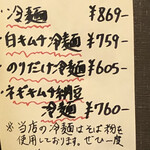 ・冷麺 ¥869-
・白キムチ冷麺 ¥759-
・のりだけ冷麺 ¥605-
・ネギキムチ納豆
冷麺 ¥760-
※当店の冷麺はそば粉を
使用しております。ぜひ一度